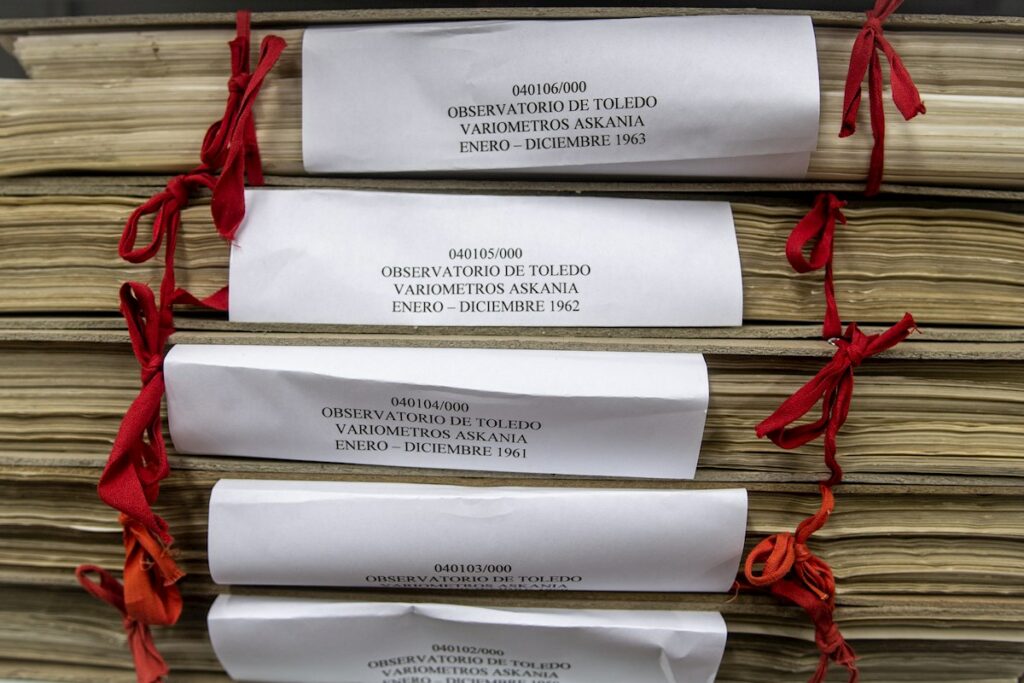 040106/000
OBSERVATORIO DE TOLEDO
VARIOMETROS ASKANIA
ENERO – DICIEMBRE 1963
040105/000
OBSERVATORIO DE TOLEDO
VARIOMETROS ASKANIA
ENERO – DICIEMBRE 1962
040104/000
OBSERVATORIO DE TOLEDO
VARIOMETROS ASKANIA
ENERO – DICIEMBRE 1961
040103/000
OBSERVATORIO DE TOLEDO
VARIOMETROS ASKANIA
040102/000
OBSERVATORIO DE TOLEDO
VARIOMETROS ASKANIA
ENERO – DICIEMBRE